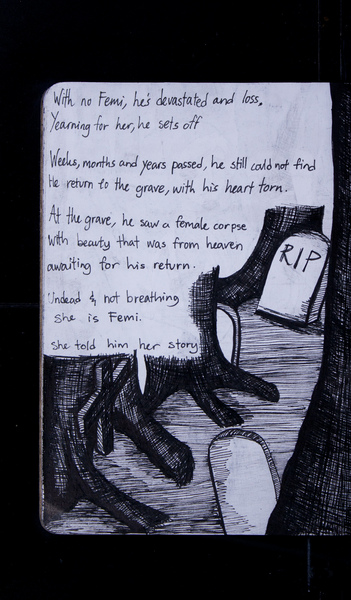 With no Femi, he's devastated and loss.
Yearning for her, he sets off
Weeks, months and years passed, he still could not find
He return to the grave, with his heart torn.
At the grave, he saw a female corpse
With beauty that was from heaven
awaiting for his return.
Undead & not breathing
She is Femi.
She told him her story
RIP